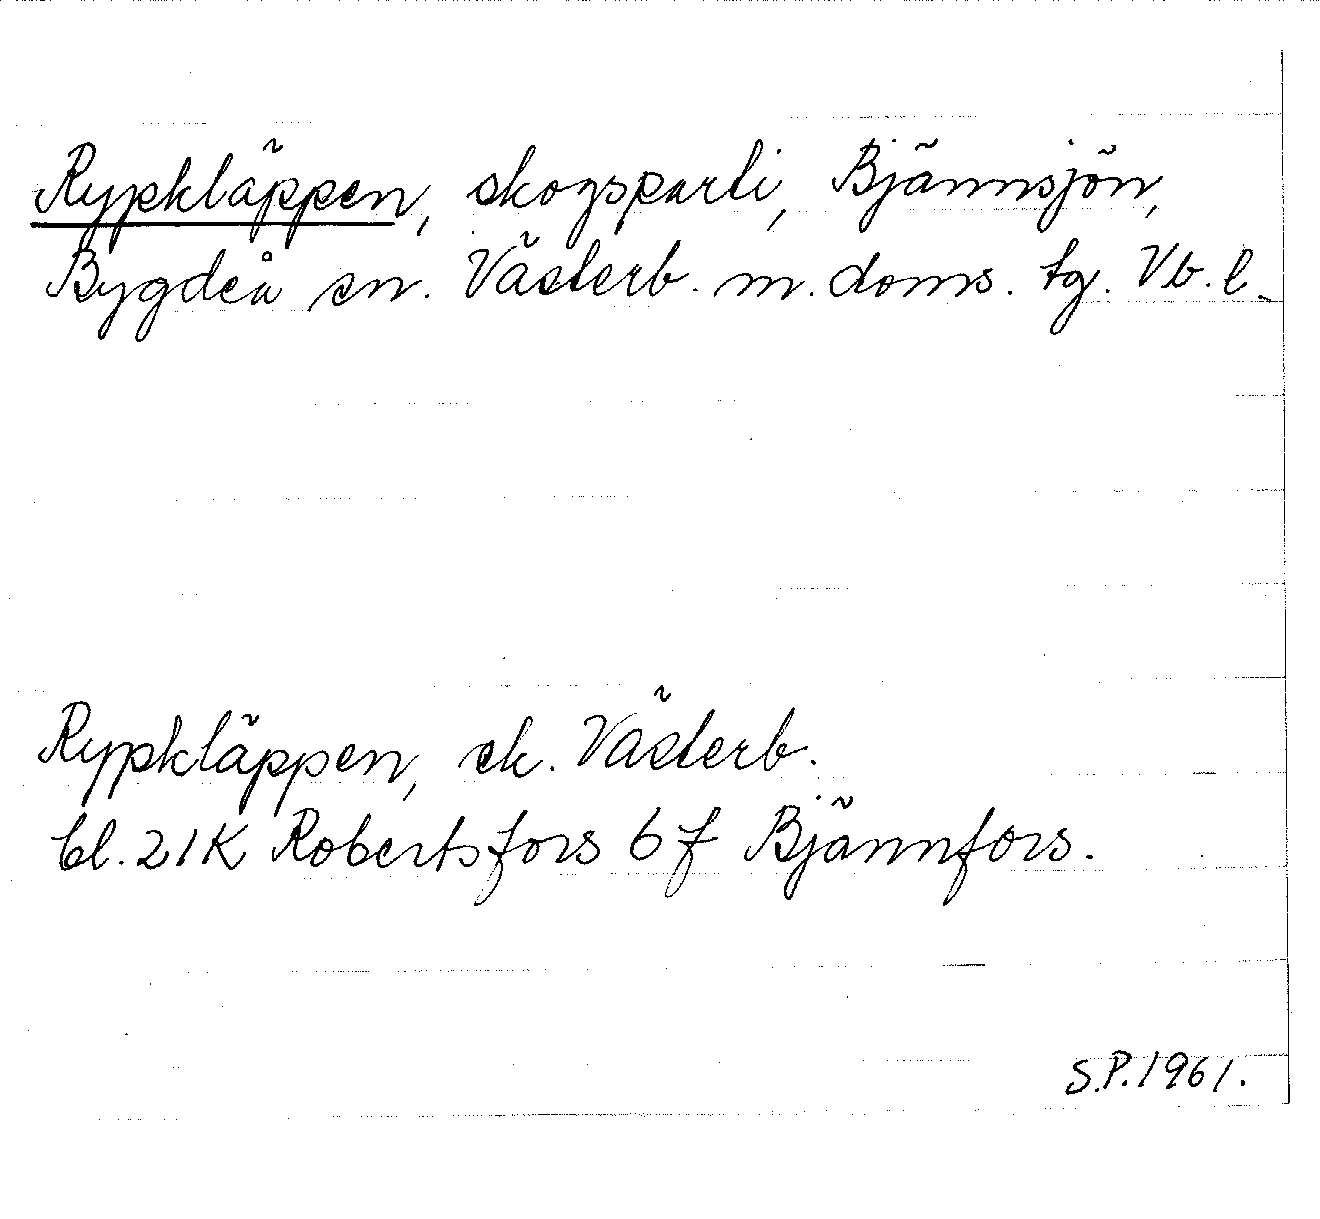 Rypkläppen, skogsparti, Bjännsjön,
Bygdeå sn. Västerb. m. doms. tg. Vb. l.
Rypkläppen, ek. Västerb.
bl. 21K Robertsfors 6 f Bjännfors.
S.P. 1961.